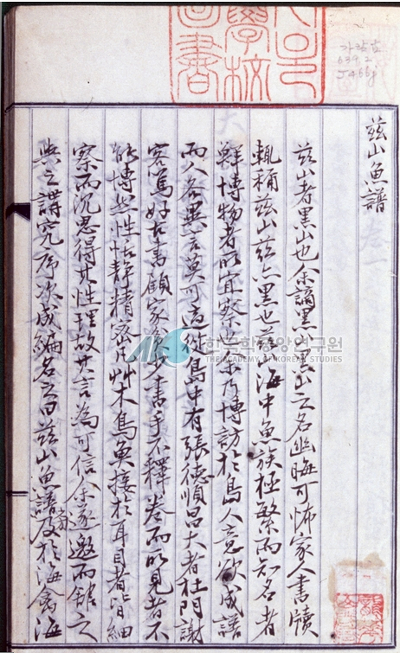 가람古
639.2
J466j
學校
圖書
兹山魚譜
兹山者黑山也余謫黑山黑山之名幽晦可怖家人書牘
輒稱兹山兹亦黑也兹山海中魚族極繁而知名者
鮮博物者所宜察也余乃博訪於島人意欲成譜
而人各異言莫可適從島中有張德順昌大者杜門謝
客篤好古書顧家貧少書手不釋卷而所見者不
能博然性恬靜精密凡艸木鳥魚接於耳目者皆細
察而沉思得其性理故其言為可信余遂邀而館之
與之講究序次成編名之曰兹山魚譜旁及於海禽海
한국학중앙연구원
THE ACADEMY OF KOREAN STUDIES